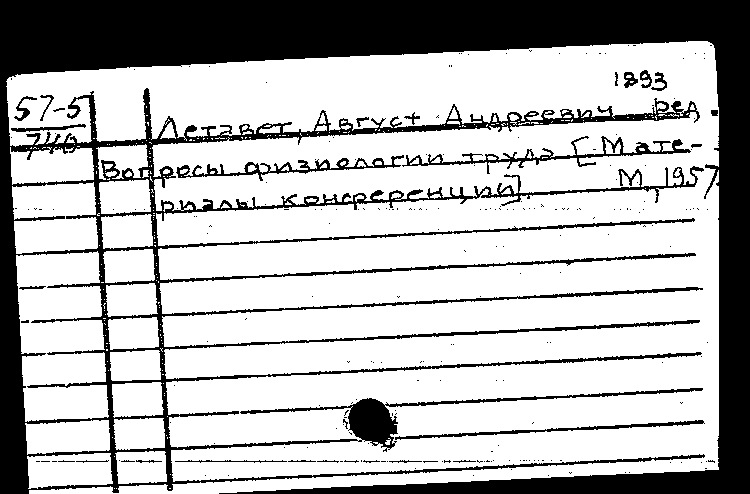 1893
57-5
740
Летавет, Август Андреевич ред.
Вопросы физиологии труда [Мате-
риалы конференции]. М., 1957